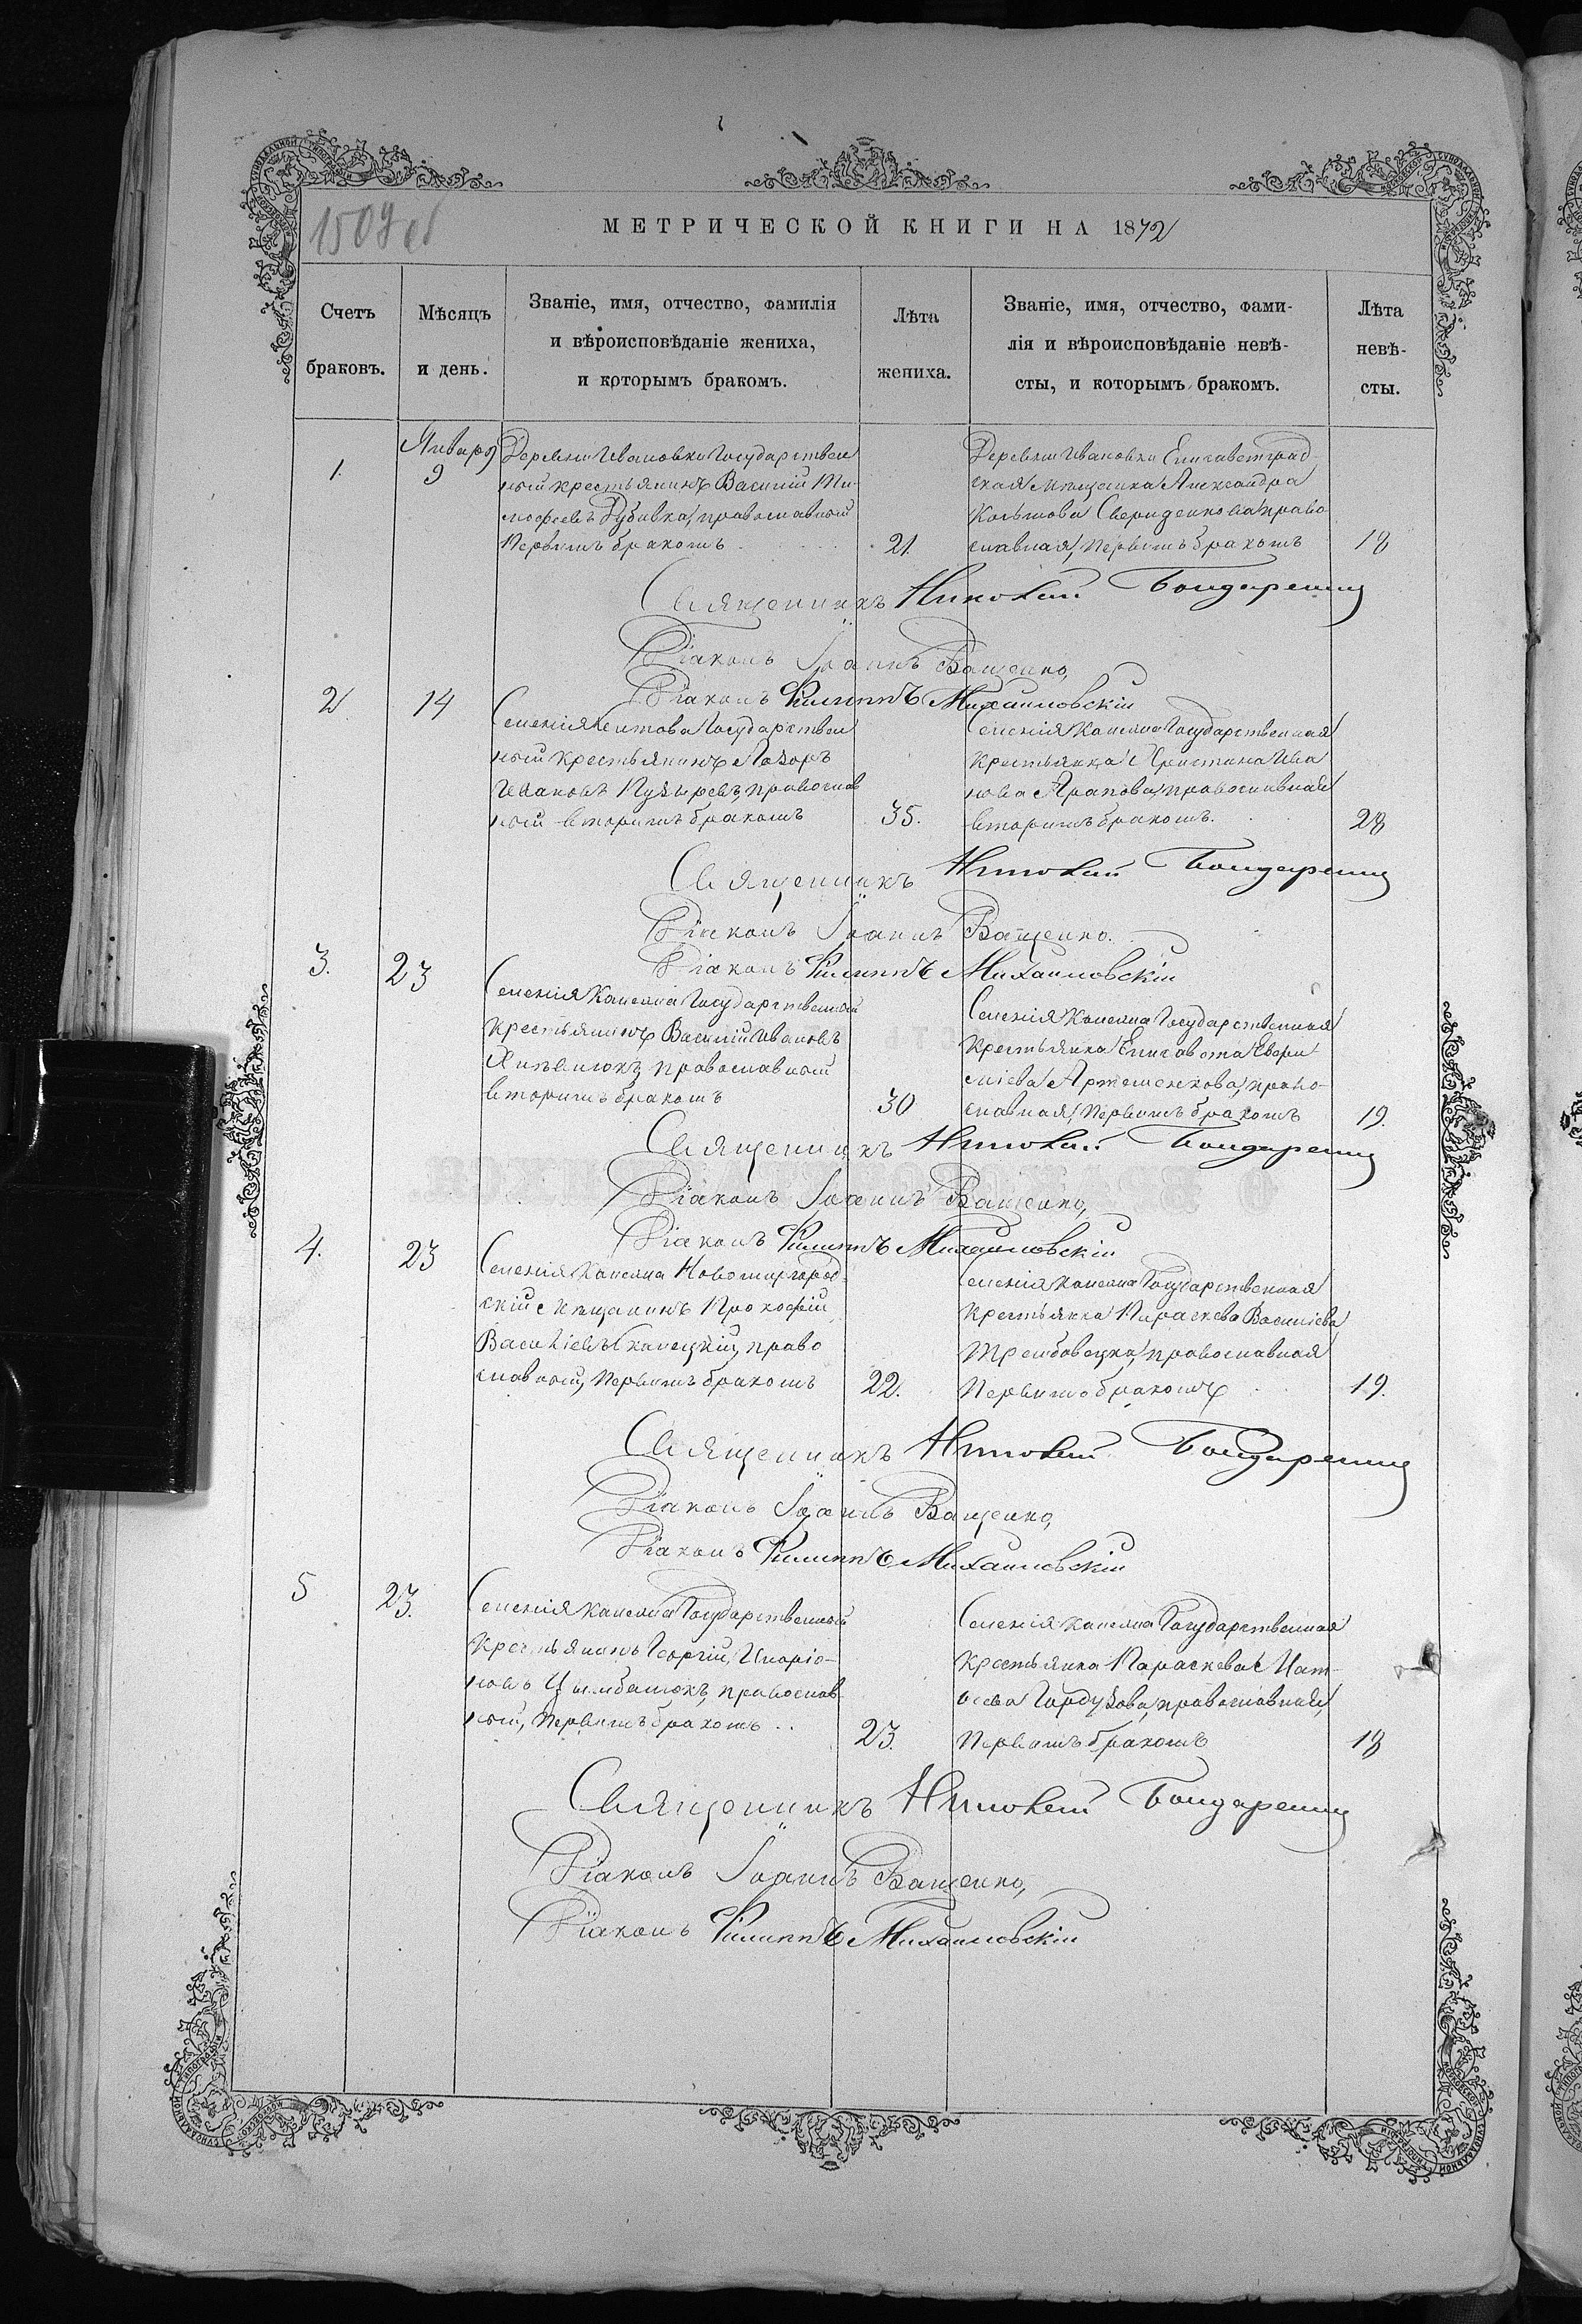 1509 об
МЕТРИЧЕСКОЙ КНИГИ НА 1872
Счетъ браковъ.
Мѣсяцъ и день.
Званіе, имя, отчество, фамилія
и вѣроисповѣданіе жениха,
и которымъ бракомъ.
Лѣта жениха.
Званіе, имя, отчество, фами-
лія и вѣроисповѣданіе невѣ-
сты, и которымъ бракомъ.
Лѣта невѣ-сты.
1.
Января 9
Деревни Ивановки Государствен
ный крестьянинъ Василій Ти-
мофеевъ Дубивка, православный
Первымъ бракомъ
21.
Деревни Ивановки Елисаветград-
ская мѣщанка Александра
Козьмова Свериденкова, право
славная, Первымъ бракомъ
18
Священникъ Николай Бондаренко
Діаконъ Іоаннъ Ващенко,
Діаконъ Филиппъ Михаиловскій
2.
14
Селенія Государствен
ный крестьянинъ Лазарь
Ивановъ Пузыревъ, православ
ный вторымъ бракомъ
35.
Селенія Канежа Государственная
Крестьянка Христина Ива
нова Арапова, православная
вторымъ бракомъ.
28
Священникъ Николай Бондаренко
Діаконъ Іоаннъ Ващенко.
Діаконъ Филиппъ Михаиловскій
3.
23
Селенія Канежа Государственный
крестьянинъ Василій Ивановъ
православный
вторымъ бракомъ
30
Селенія Канежа Государственная
Крестьянка Елисавета Евфи
міева Артеменкова, право-
славная, Первымъ бракомъ
19.
Священникъ Николай Бондаренко
Діаконъ Іоаннъ Ващенко,
Діаконъ Филиппъ Михаиловскій
4.
23
Селенія Канежа Новомиргород-
скій мѣщанинъ Прокофій
Василіевъ право
славный, Первымъ бракомъ
22.
Селенія Канежа Государственная
Крестьянка Параскева Василіева
православная
Первымъ бракомъ
19.
Священникъ Николай Бондаренко
Діаконъ Іоаннъ Ващенко,
Діаконъ Филиппъ Михаиловскій
5
23.
Селенія Канежа Государственный
Крестьянинъ Георгій Иларіо-
новъ Цымбалюкъ, православ
ный, Первымъ бракомъ..
23.
Селенія Канежа Государственная
Крестьянка Параскева Мат-
ѳеева Гордузова, православная,
Первымъ бракомъ
18
Священникъ Николай Бондаренко
Діаконъ Іоаннъ Ващенко,
Діаконъ Филиппъ Михаиловскій